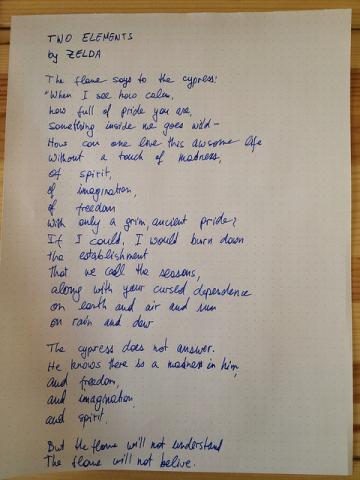 TWO ELEMENTS
by ZELDA
The flame says to the cypress:
"When I see how calm,
how full of pride you are,
something inside me goes wild –
How can one live this awsome life
without a touch of madness,
of spirit,
of imagination,
of freedom
with only a grim, ancient pride?
If I could, I would burn down
the establishment
that we call the seasons,
along with your cursed dependence
on earth and air and sun
on rain and dew
The cypress does not answer.
He knows there is a madness in him,
and freedom,
and imagination,
and spirit.
But the flame will not understand
The flame will not belive.